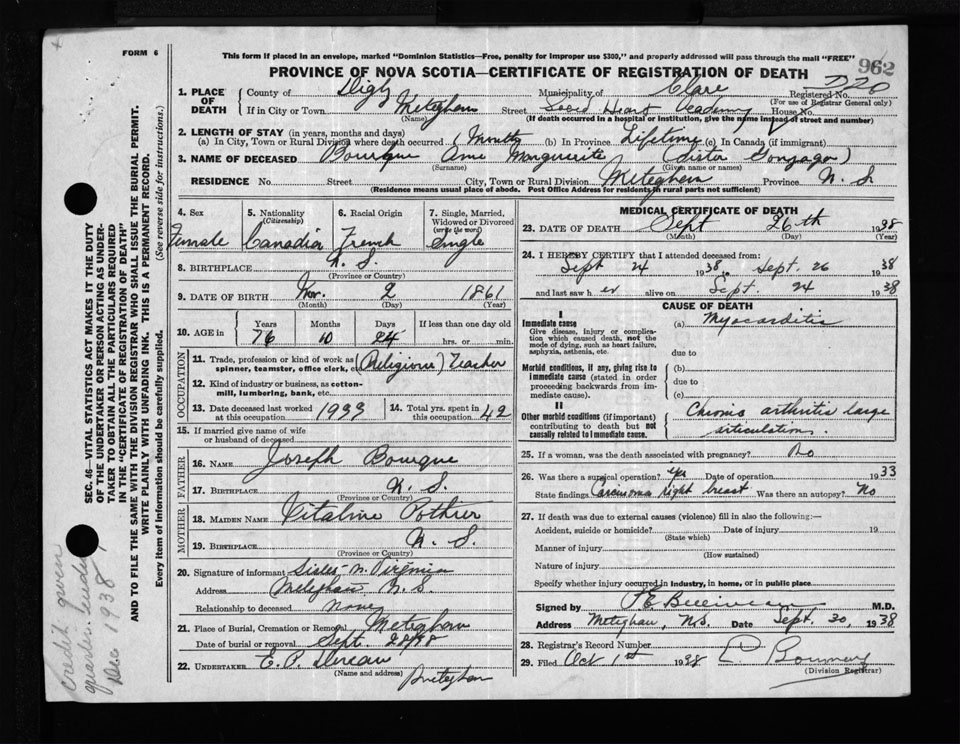 FORM 6
This form if placed in an envelope, marked "Dominion Statistics—Free, penalty for improper use $300," and properly addressed will pass through the mail "FREE"
962
PROVINCE OF NOVA SCOTIA—CERTIFICATE OF REGISTRATION OF DEATH
1. PLACE OF DEATH
County of Digby Municipality of Clare Registered No. 220
(For use of Registrar General only)
If in City or Town Meteghan Street Sacred Heart Academy House No.
(Name) (If death occurred in a hospital or institution, give the name instead of street and number)
2. LENGTH OF STAY (in years, months and days)
(a) In City, Town or Rural Division where death occurred (b) In Province Lifetime (c) In Canada (if immigrant)
3. NAME OF DECEASED Bourque Anne Marguerite (Sister Gonzaga)
(Surname) (Given name or names)
RESIDENCE No. Street City, Town or Rural Division Meteghan Province N. S.
(Residence means usual place of abode. Post Office Address for residents in rural parts not sufficient)
4. Sex Female
5. Nationality (Citizenship) Canadian
6. Racial Origin French
7. Single, Married, Widowed or Divorced (write the word) Single
8. BIRTHPLACE N. S.
(Province or Country)
9. DATE OF BIRTH Nov. 2 1861
(Month) (Day) (Year)
10. AGE in Years 76 Months 10 Days 24 If less than one day old hrs. or min.
OCCUPATION
11. Trade, profession or kind of work as spinner, teamster, office clerk, etc. (Religious) Teacher
12. Kind of industry or business, as cotton-mill, lumbering, bank, etc.
13. Date deceased last worked at this occupation 1933 14. Total yrs. spent in this occupation 42
15. If married give name of wife or husband of deceased
FATHER
16. NAME Joseph Bourque
17. BIRTHPLACE N. S.
(Province or Country)
MOTHER
18. MAIDEN NAME Vitaline Pothier
19. BIRTHPLACE N. S.
(Province or Country)
20. Signature of informant Sister M. Virginia
Address Meteghan N. S.
Relationship to deceased None
21. Place of Burial, Cremation or Removal Meteghan
Date of burial or removal Sept. 28
22. UNDERTAKER
(Name and address) Meteghan
MEDICAL CERTIFICATE OF DEATH
23. DATE OF DEATH Sept 26th 1938
(Month) (Day) (Year)
24. I HEREBY CERTIFY that I attended deceased from:
Sept 24 1938, Sept. 26 1938
and last saw her alive on Sept. 24 1938
CAUSE OF DEATH
I
Immediate cause
Give disease, injury or complication which caused death, not the mode of dying, such as heart failure, asphyxia, asthenia, etc.
(a) Myocarditis
due to
Morbid conditions, if any, giving rise to immediate cause (stated in order proceeding backwards from immediate cause).
(b)
due to
(c)
II
Other morbid conditions (if important) contributing to death but not causally related to immediate cause.
Chronic arthritis large articulations.
25. If a woman, was the death associated with pregnancy? No
26. Was there a surgical operation? Yes Date of operation 1933
State findings Carcinoma right breast Was there an autopsy? No
27. If death was due to external causes (violence) fill in also the following:—
Accident, suicide or homicide? Date of injury 19
(State which)
Manner of injury
(How sustained)
Nature of injury
Specify whether injury occurred in industry, in home, or in public place
Signed by M.D.
Address Meteghan, N.S. Date Sept. 30, 1938
28. Registrar's Record Number
29. Filed Oct 1st 1938
(Division Registrar)
SEC. 46—VITAL STATISTICS ACT MAKES IT THE DUTY
OF THE UNDERTAKER OR PERSON ACTING AS UNDER-
TAKER TO OBTAIN ALL THE PARTICULARS REQUIRED
IN THE "CERTIFICATE OF REGISTRATION OF DEATH"
AND TO FILE THE SAME WITH THE DIVISION REGISTRAR WHO SHALL ISSUE THE BURIAL PERMIT.
WRITE PLAINLY WITH UNFADING INK. THIS IS A PERMANENT RECORD.
Every item of information should be carefully supplied. (See reverse side for instructions.)
Credit given
quarter ending
Dec 1938